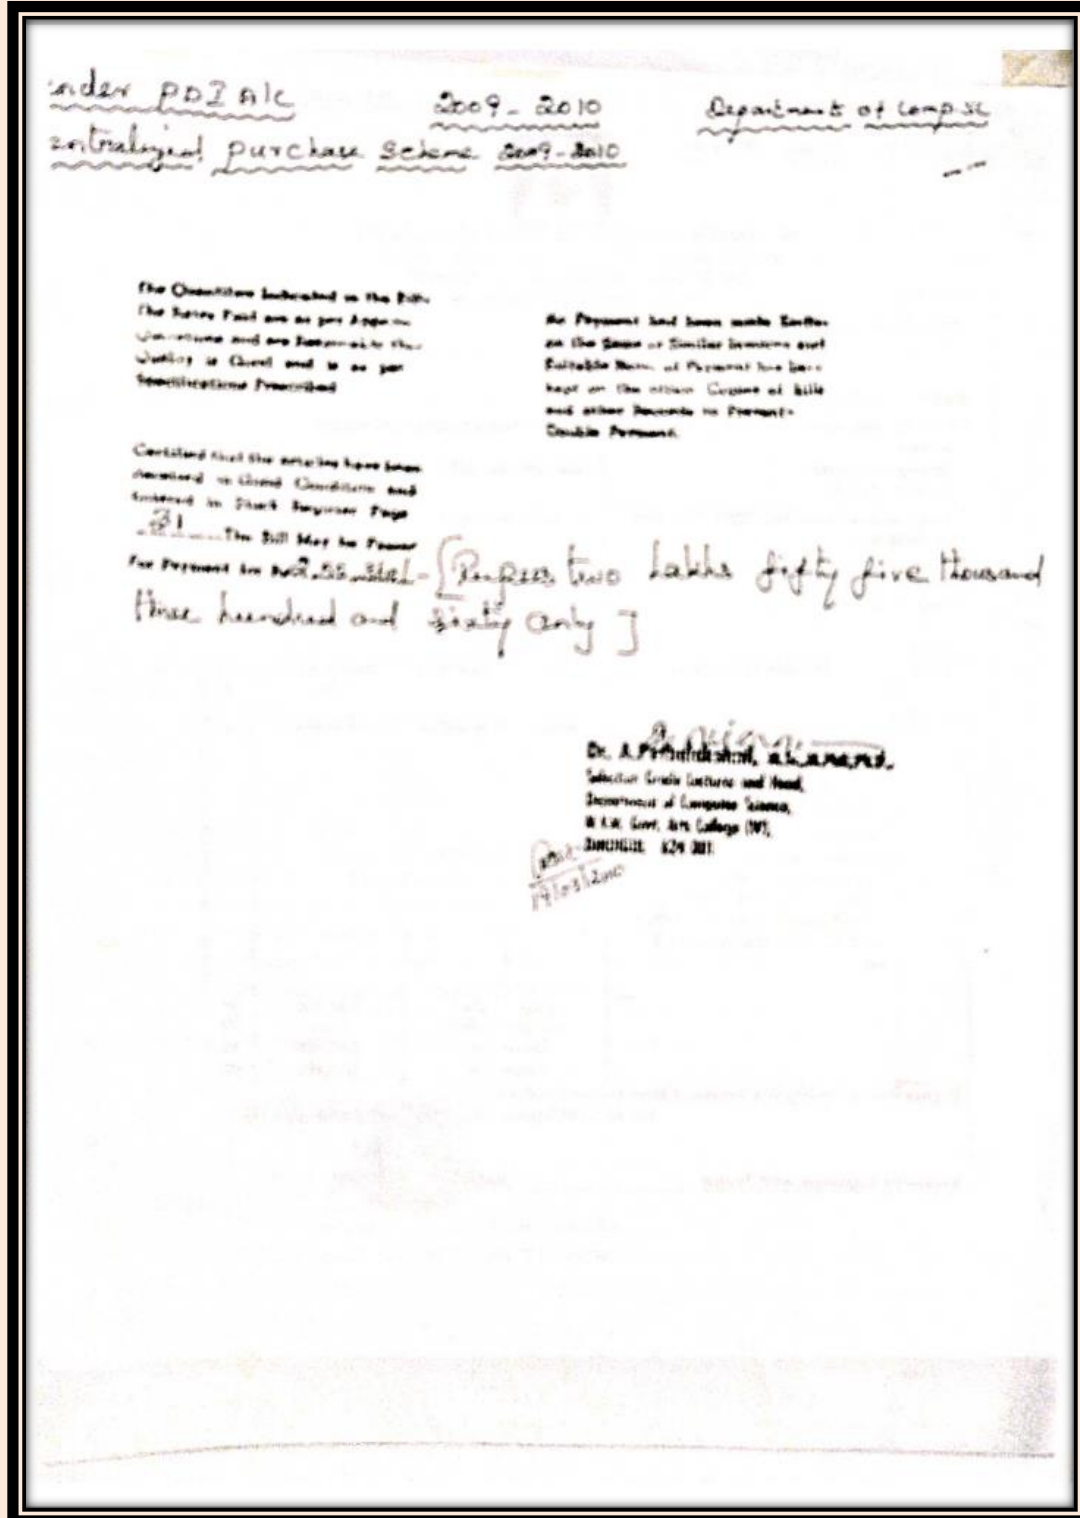 under PDI A/c 2009 - 2010 Department of Comp. SC
entralized purchase Scheme 2009-2010
The Quantities Indicated in the Bills
The Rates Paid are as per
and are Reasonable The
Quality is Good and is as per
Specifications Prescribed
No Payment had been made Earlier
on the Same or Similar Invoices and
Suitable Note of Payment has been
kept on the Copies of Bills
and other Records to Prevent
Double Payment.
Certified that the articles have been
Received in Good Condition and
Entered in Stock Register Page
31 The Bill May be Passed
For Payment for Rs 2,55,360/- [Rupees two Lakhs fifty five thousand
three hundred and sixty only ]
Dr. A.
Selection Grade Lecturer and Head,
Department of Computer Science,
Govt. Arts College (W),
624 001
19/03/2010